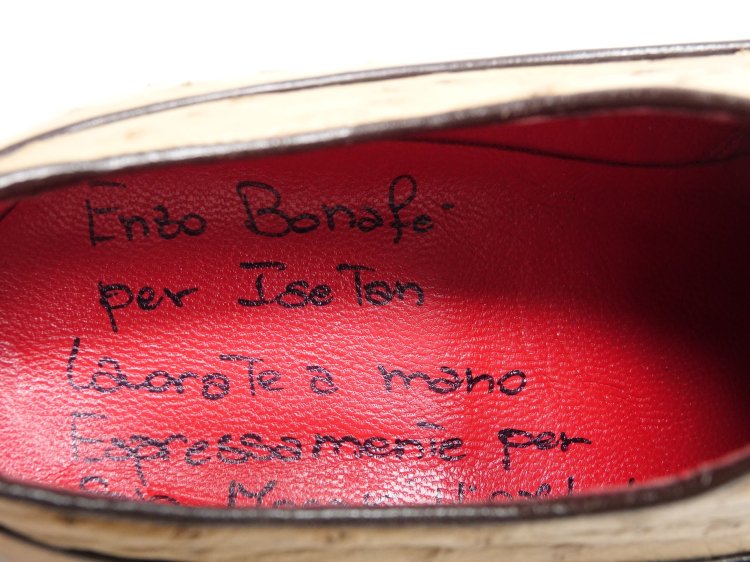 Enzo Bonafè
per IseTan
LavoraTe a mano
Espressamente per